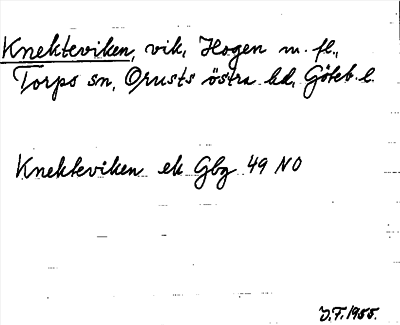 Knekteviken, vik, Hogen m. fl.,
Torps sn, Orusts östra hd, Göteb. l.
Knekteviken ek Gbg 49 NO
V.F. 1955.